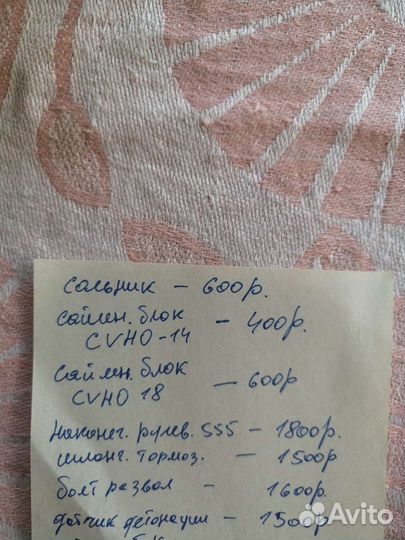 сальник – 600р.
сайлен. блок – 400р.
CVHO-14
сайлен. блок
CVHO 18 – 600р
наконеч. рулев. 555 – 1800р.
шланг. тормоз. – 1500р
болт развал – 1600р.
датчик детонации – 1500р
Avito